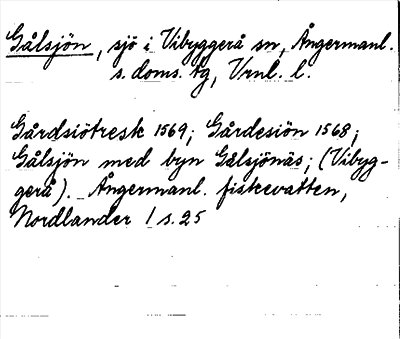 Gålsjön, sjö i Vibyggerå sn, Ångermanl.
s. doms. tg, Vrnl. l.
Gårdsiötresk 1569; Gårdesiön 1568;
Gålsjön med byn Gålsjönäs; (Vibyg-
gerå). Ångermanl. fiskevatten,
Nordlander 1 s. 25